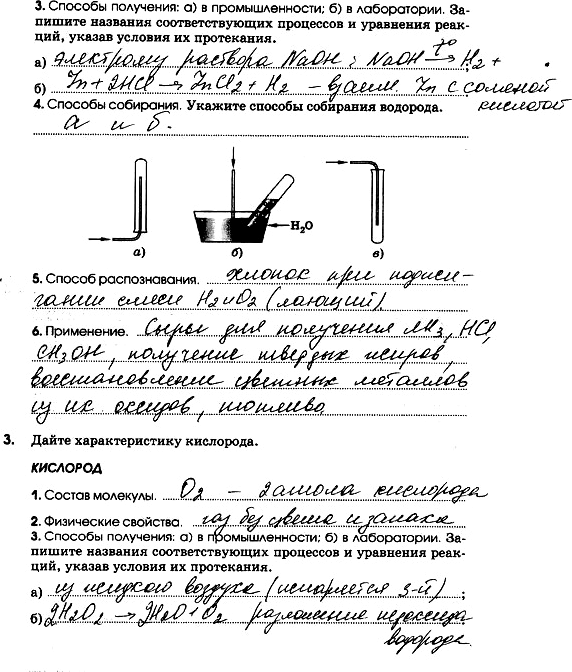 3. Способы получения: а) в промышленности; б) в лаборатории. За-
пишите названия соответствующих процессов и уравнения реак-
ций, указав условия их протекания.
а) раствора NaOH; NaOH → H2 +
б) Zn + 2HCl → ZnCl2 + H2 – взаим. Zn с соляной
4. Способы собирания. Укажите способы собирания водорода. кислотой
а и б.
H2O
а) б) в)
5. Способ распознавания. хлопок при поджи-
гании смеси H2 и O2 (лающий).
6. Применение. Сырьё для получения NH3, HCl,
CH3OH, получение твердых жиров,
восстановление цветных металлов
из их оксидов, топливо
3. Дайте характеристику кислорода.
КИСЛОРОД
1. Состав молекулы. O2 – 2 атома кислорода
2. Физические свойства. газ без цвета и запаха
3. Способы получения: а) в промышленности; б) в лаборатории. За-
пишите названия соответствующих процессов и уравнения реак-
ций, указав условия их протекания.
а) из жидкого воздуха (испаряется ;
б) 2H2O2 → 2H2O + O2 разложение пероксида
водорода.